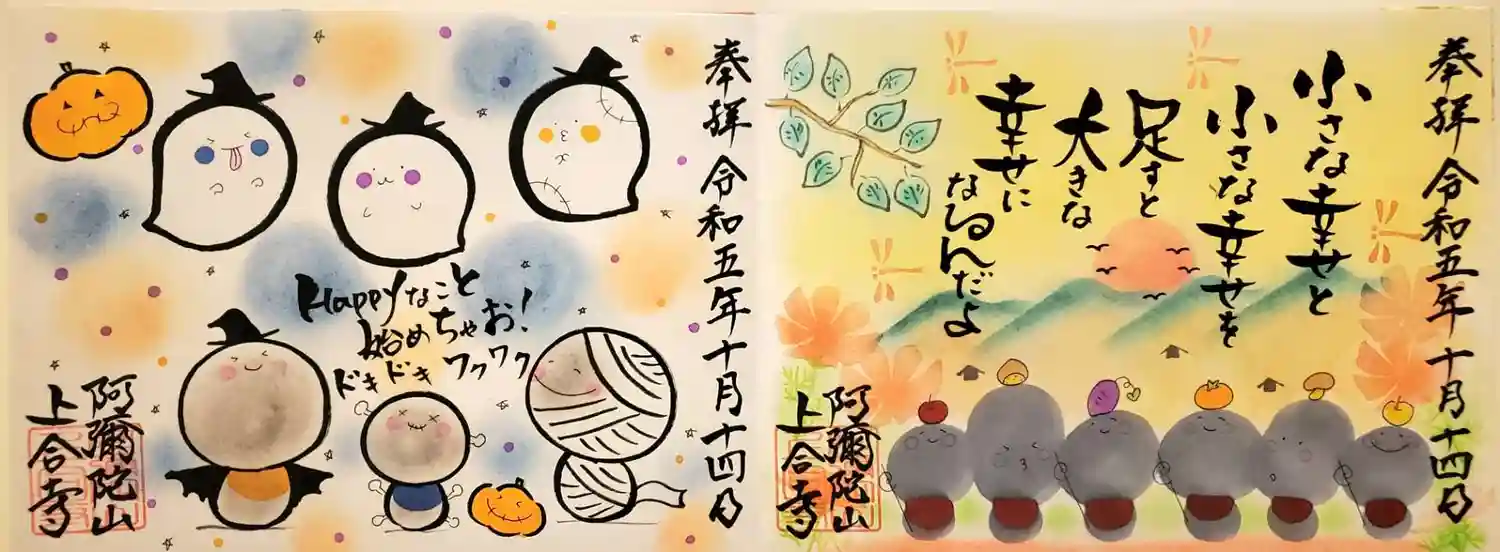 奉拝 令和五年十月十四日
Happyなこと
始めちゃお!
ドキドキ ワクワク
阿彌陀山
上合寺
奉拝 令和五年十月十四日
小さな幸せと
小さな幸せを
足すと
大きな
幸せに
なるんだよ
阿彌陀山
上合寺